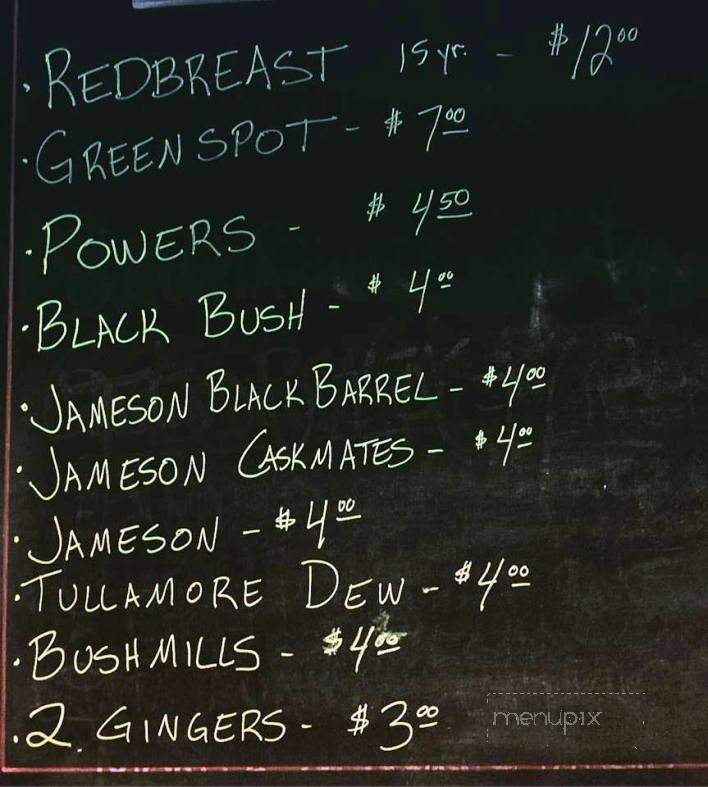 · REDBREAST 15 yr. - $12.00
· GREEN SPOT - $7.00
· POWERS - $4.50
· BLACK BUSH - $4.00
· JAMESON BLACK BARREL - $4.00
· JAMESON CASKMATES - $4.00
· JAMESON - $4.00
· TULLAMORE DEW - $4.00
· BUSHMILLS - $4.00
· 2. GINGERS - $3.00
menupix